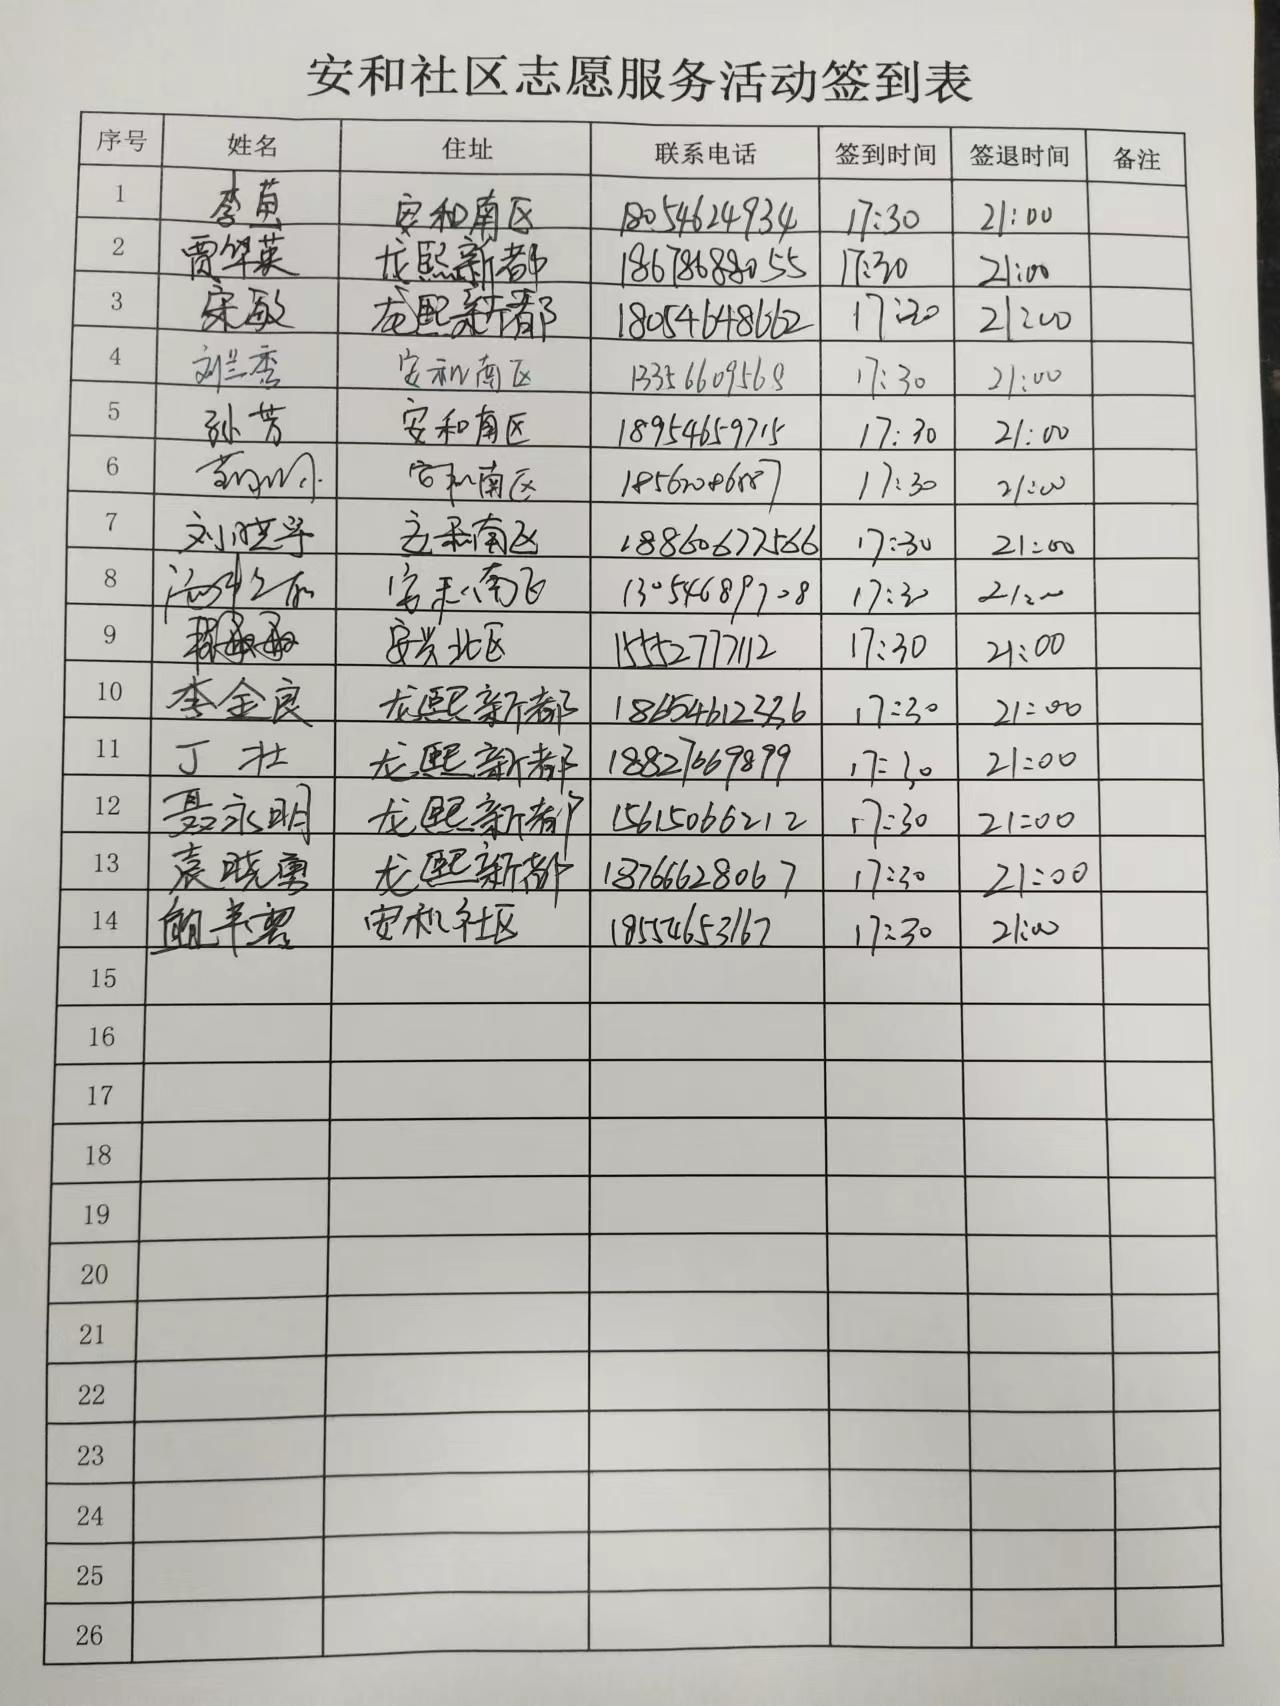 安和社区志愿服务活动签到表
序号 姓名 住址 联系电话 签到时间 签退时间 备注
1 李茛 安和南区 18054624934 17:30 21:00
2 贾华英 龙熙新都 18678688055 17:30 21:00
3 宋敏 龙熙新都 18054648662 17:30 21:00
4 刘兰香 安和南区 13356609568 17:30 21:00
5 孙芳 安和南区 18954659715 17:30 21:00
6 安和南区 17:30 21:00
7 刘晓宇 安和南区 18860677566 17:30 21:00
8 安和南区 13054689708 17:30 21:00
9 安兴北区 15552777112 17:30 21:00
10 李金良 龙熙新都 18654612336 17:30 21:00
11 丁壮 龙熙新都 18827669899 17:30 21:00
12 聂永明 龙熙新都 15615066212 17:30 21:00
13 袁晓勇 龙熙新都 18766628067 17:30 21:00
14 安和社区 18554653167 17:30 21:00
15
16
17
18
19
20
21
22
23
24
25
26